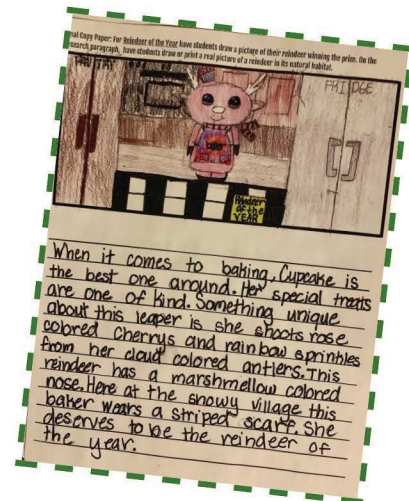 nal Copy Paper: For Reindeer of the Year have students draw a picture of their reindeer winning the prize. On the
search paragraph, have students draw or print a real picture of a reindeer in its natural habitat.
FRIDGE
Reindeer
of the
YEAR
When it comes to baking, Cupcake is
the best one around. Her special treats
are one of kind. Something unique
about this leaper is she shoots rose
colored Cherrys and rainbow sprinkles
from her cloud colored antlers. This
reindeer has a marshmellow colored
nose. Here at the snowy village this
baker wears a striped scarf. She
deserves to be the reindeer of
the year.